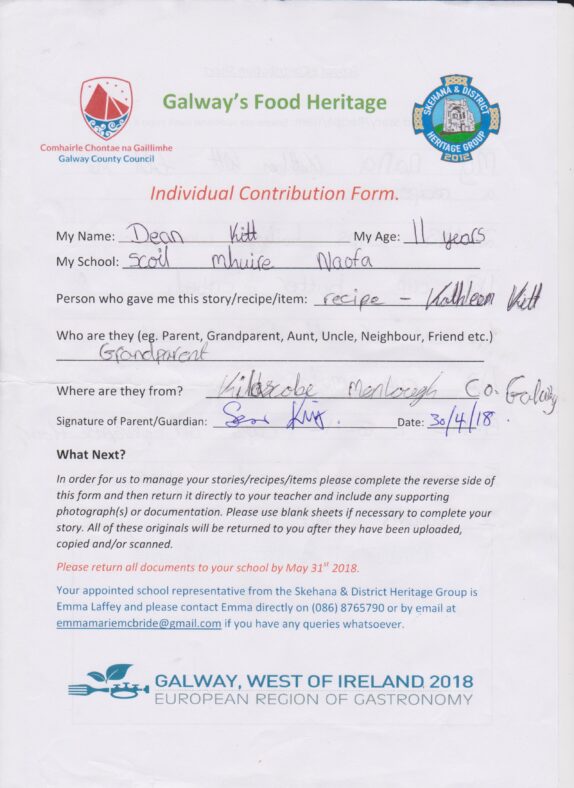 Comhairle Chontae na Gaillimhe
Galway County Council
Galway's Food Heritage
SKEHANA & DISTRICT
HERITAGE GROUP
2012
Individual Contribution Form.
My Name: Dean Kitt My Age: 11 years
My School: Scoil Mhuire Naofa
Person who gave me this story/recipe/item: recipe - Kathleen Kitt
Who are they (eg. Parent, Grandparent, Aunt, Uncle, Neighbour, Friend etc.)
Grandparent
Where are they from? Menlough Co. Galway
Signature of Parent/Guardian: Date: 30/4/18.
What Next?
In order for us to manage your stories/recipes/items please complete the reverse side
of this form and then return it directly to your teacher and include any supporting
photograph(s) or documentation. Please use blank sheets if necessary to complete your
story. All of these originals will be returned to you after they have been uploaded,
copied and/or scanned.
Please return all documents to your school by May 31st 2018.
Your appointed school representative from the Skehana & District Heritage Group is
Emma Laffey and please contact Emma directly on (086) 8765790 or by email at
emmamariemcbride@gmail.com if you have any queries whatsoever.
GALWAY, WEST OF IRELAND 2018
EUROPEAN REGION OF GASTRONOMY